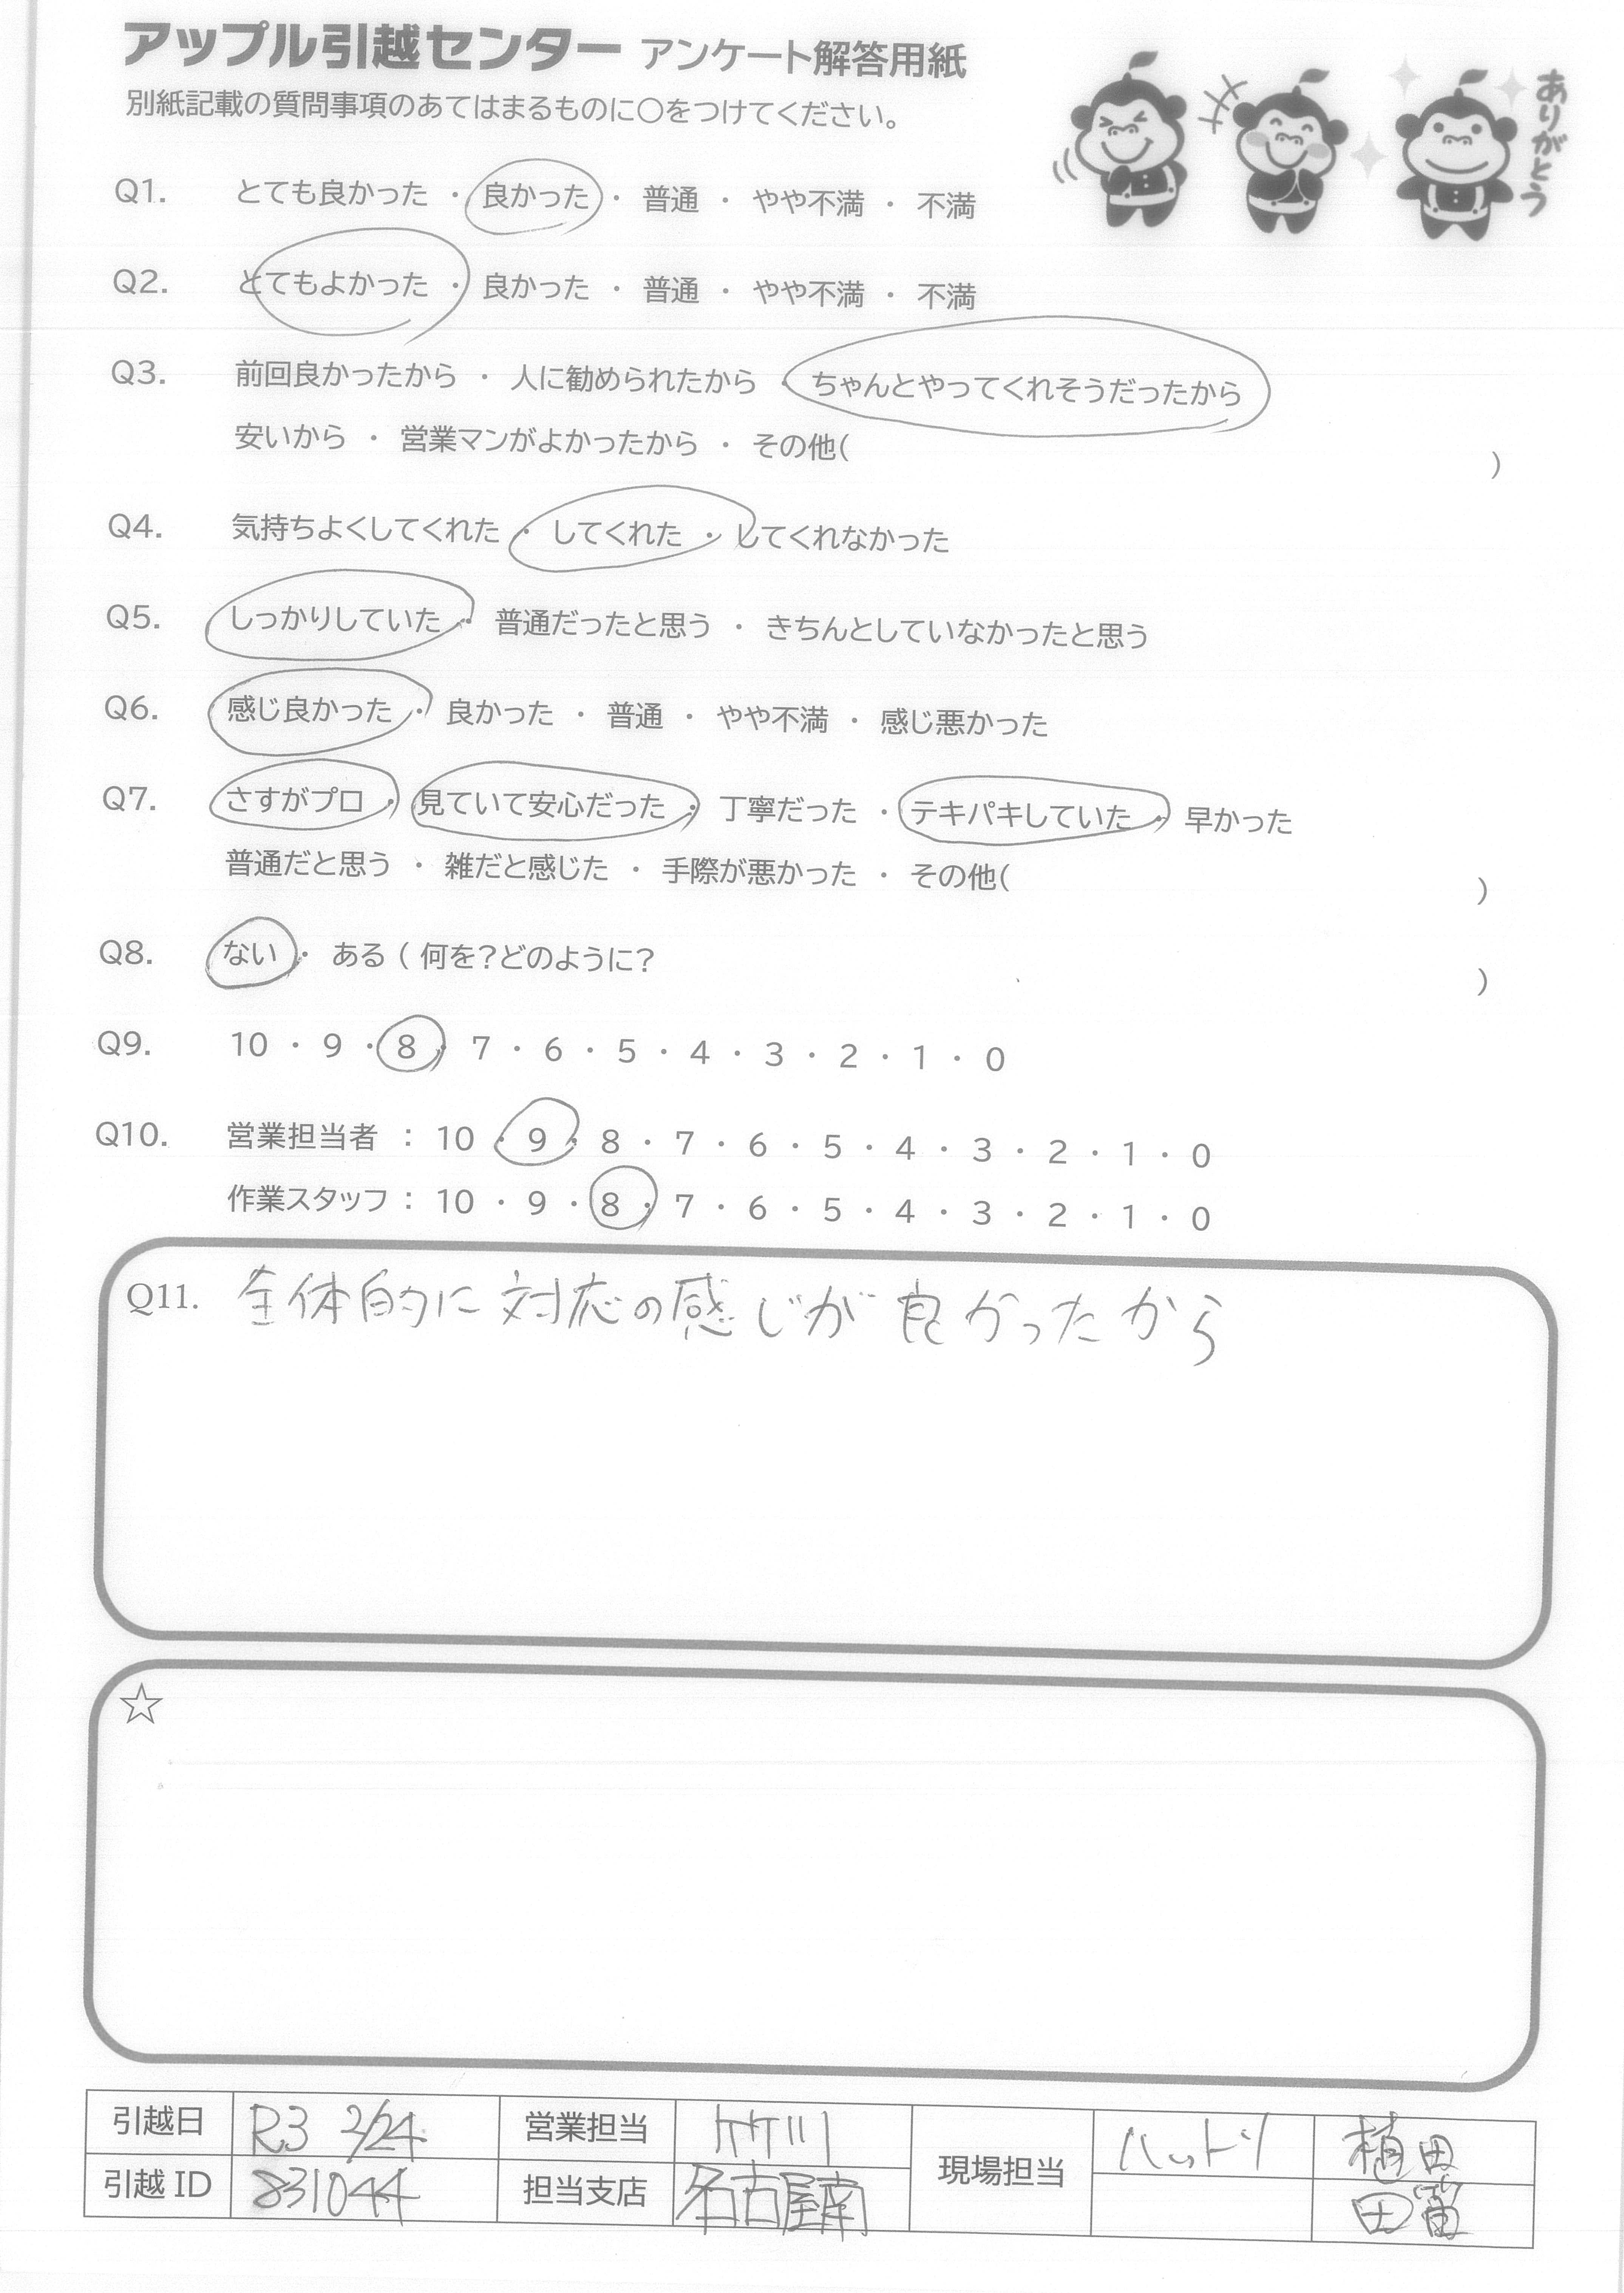 アップル引越センター アンケート解答用紙
別紙記載の質問事項のあてはまるものに〇をつけてください。
ありがとう
Q1. とても良かった ・ 良かった ・ 普通 ・ やや不満 ・ 不満
Q2. とてもよかった ・ 良かった ・ 普通 ・ やや不満 ・ 不満
Q3. 前回良かったから ・ 人に勧められたから ・ ちゃんとやってくれそうだったから
安いから ・ 営業マンがよかったから ・ その他( )
Q4. 気持ちよくしてくれた ・ してくれた ・ してくれなかった
Q5. しっかりしていた ・ 普通だったと思う ・ きちんとしていなかったと思う
Q6. 感じ良かった ・ 良かった ・ 普通 ・ やや不満 ・ 感じ悪かった
Q7. さすがプロ ・ 見ていて安心だった ・ 丁寧だった ・ テキパキしていた ・ 早かった
普通だと思う ・ 雑だと感じた ・ 手際が悪かった ・ その他( )
Q8. ない ・ ある ( 何を?どのように? )
Q9. 10 ・ 9 ・ 8 ・ 7 ・ 6 ・ 5 ・ 4 ・ 3 ・ 2 ・ 1 ・ 0
Q10. 営業担当者 : 10 ・ 9 ・ 8 ・ 7 ・ 6 ・ 5 ・ 4 ・ 3 ・ 2 ・ 1 ・ 0
作業スタッフ : 10 ・ 9 ・ 8 ・ 7 ・ 6 ・ 5 ・ 4 ・ 3 ・ 2 ・ 1 ・ 0
Q11. 全体的に対応の感じが良かったから
☆
引越日 R3 2/24 営業担当 現場担当 ハットリ 植田
引越 ID 831044 担当支店 名古屋南